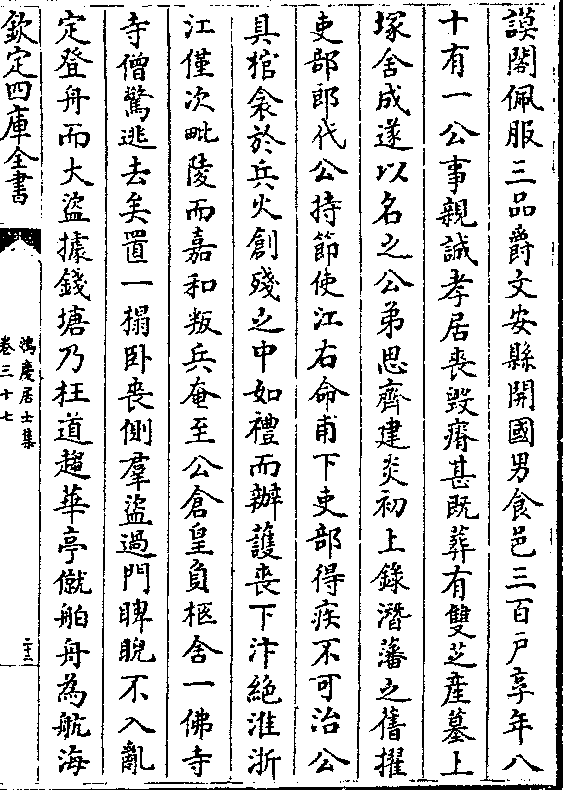 謨閣佩服三品爵文安縣開國男食邑三百戶享年八
十有一公事親誠孝居喪毀瘠甚既葬有雙芝産墓上
塚舍成遂以名之公弟思齊建炎初上錄潛藩之舊擢
吏部郎代公持節使江右命甫下吏部得疾不可治公
具棺衾於兵火創殘之中如禮而辦護喪下汴絶淮浙
江僅次毗陵而嘉和叛兵奄至公倉皇負柩舍一佛寺
寺僧驚逃去矣置一榻卧喪側羣盜過門睥睨不入亂
定登舟而大盜據錢塘乃枉道趨華亭僦舶舟為航海
欽定四庫全書
鴻慶居士集
卷三十七
二十三